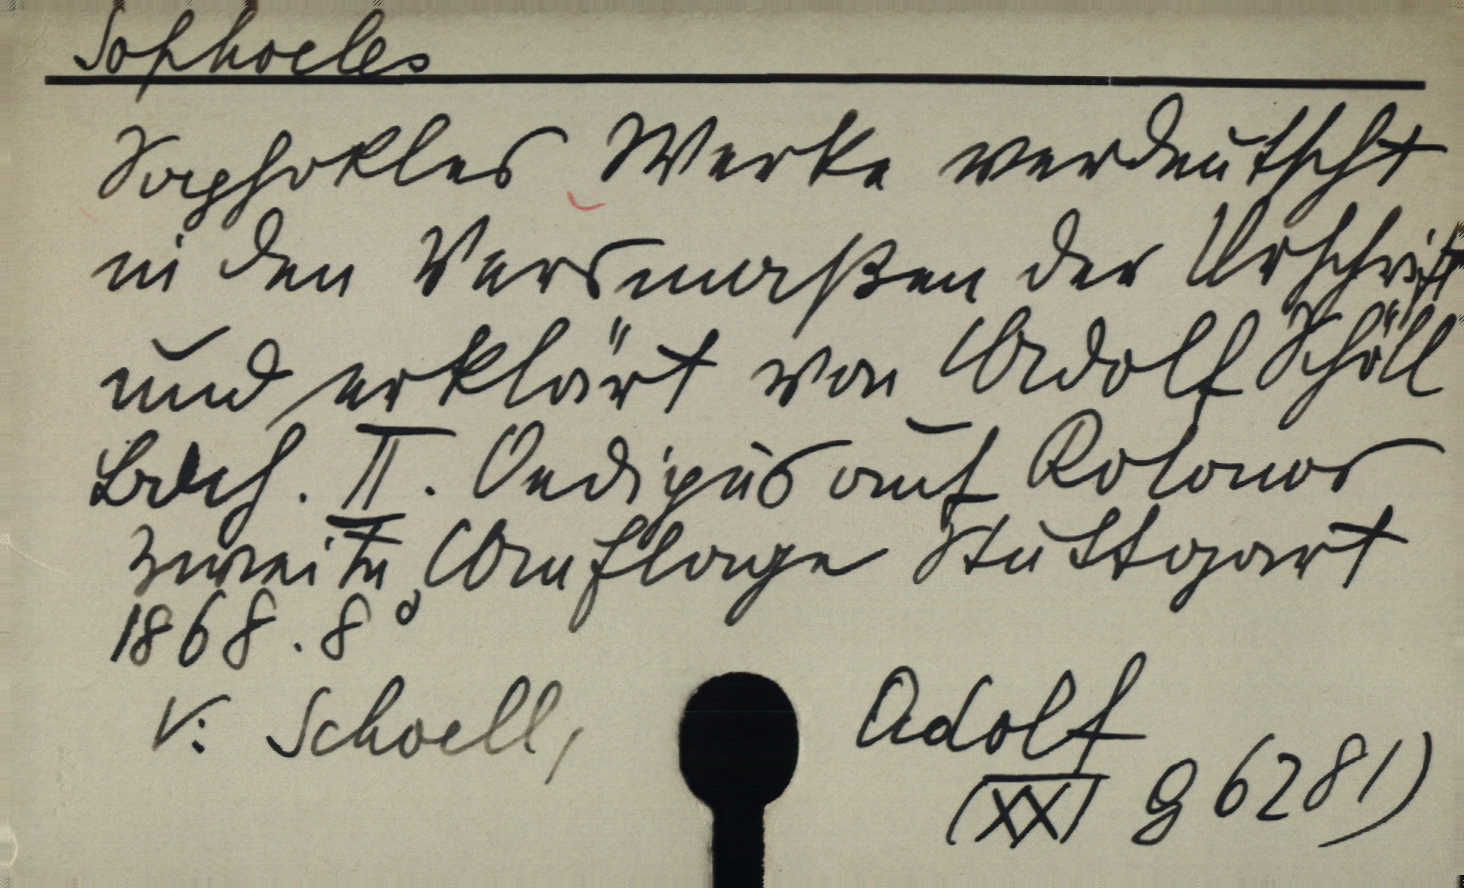 Sophocles
Sophokles Werke verdeutscht
in den Versmaßen der Urschrift
und erklärt von Adolf Schöll
Bdch. II. Oedipus auf Kolonos
zweite Auflage Stuttgart
1868. 8°
V: Schoell, Adolf
(XX) g 6281)